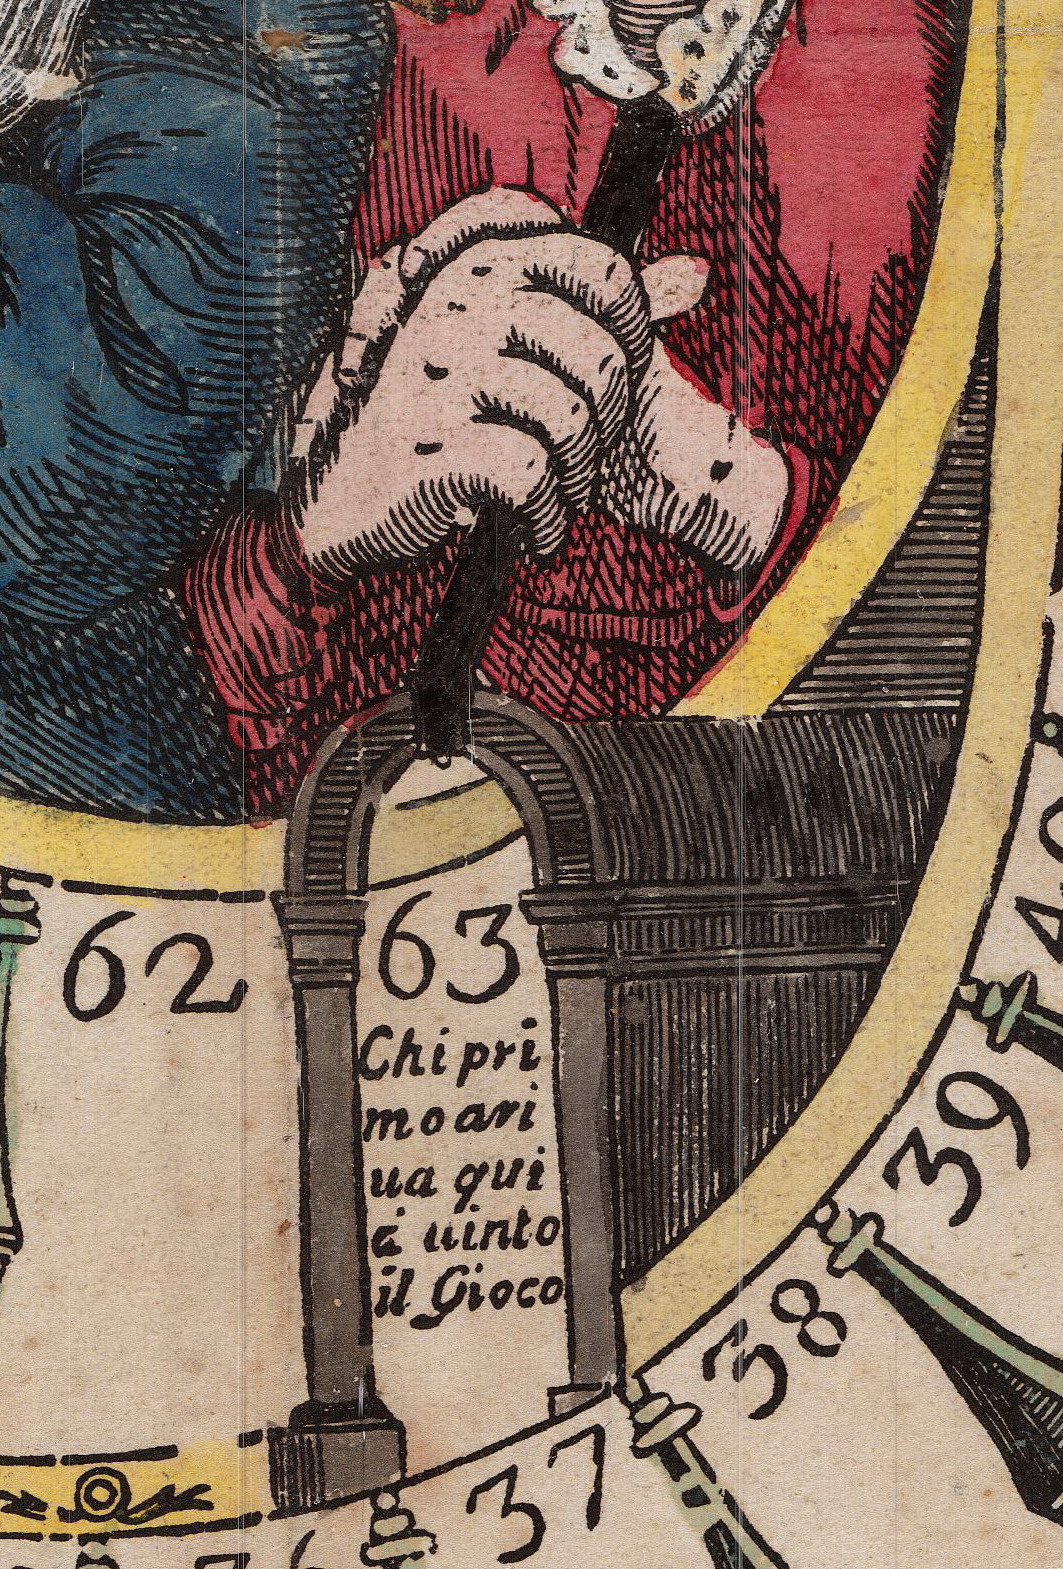 62
63
Chi pri
mo ari
ua qui
á uinto
il Gioco
39
38
37